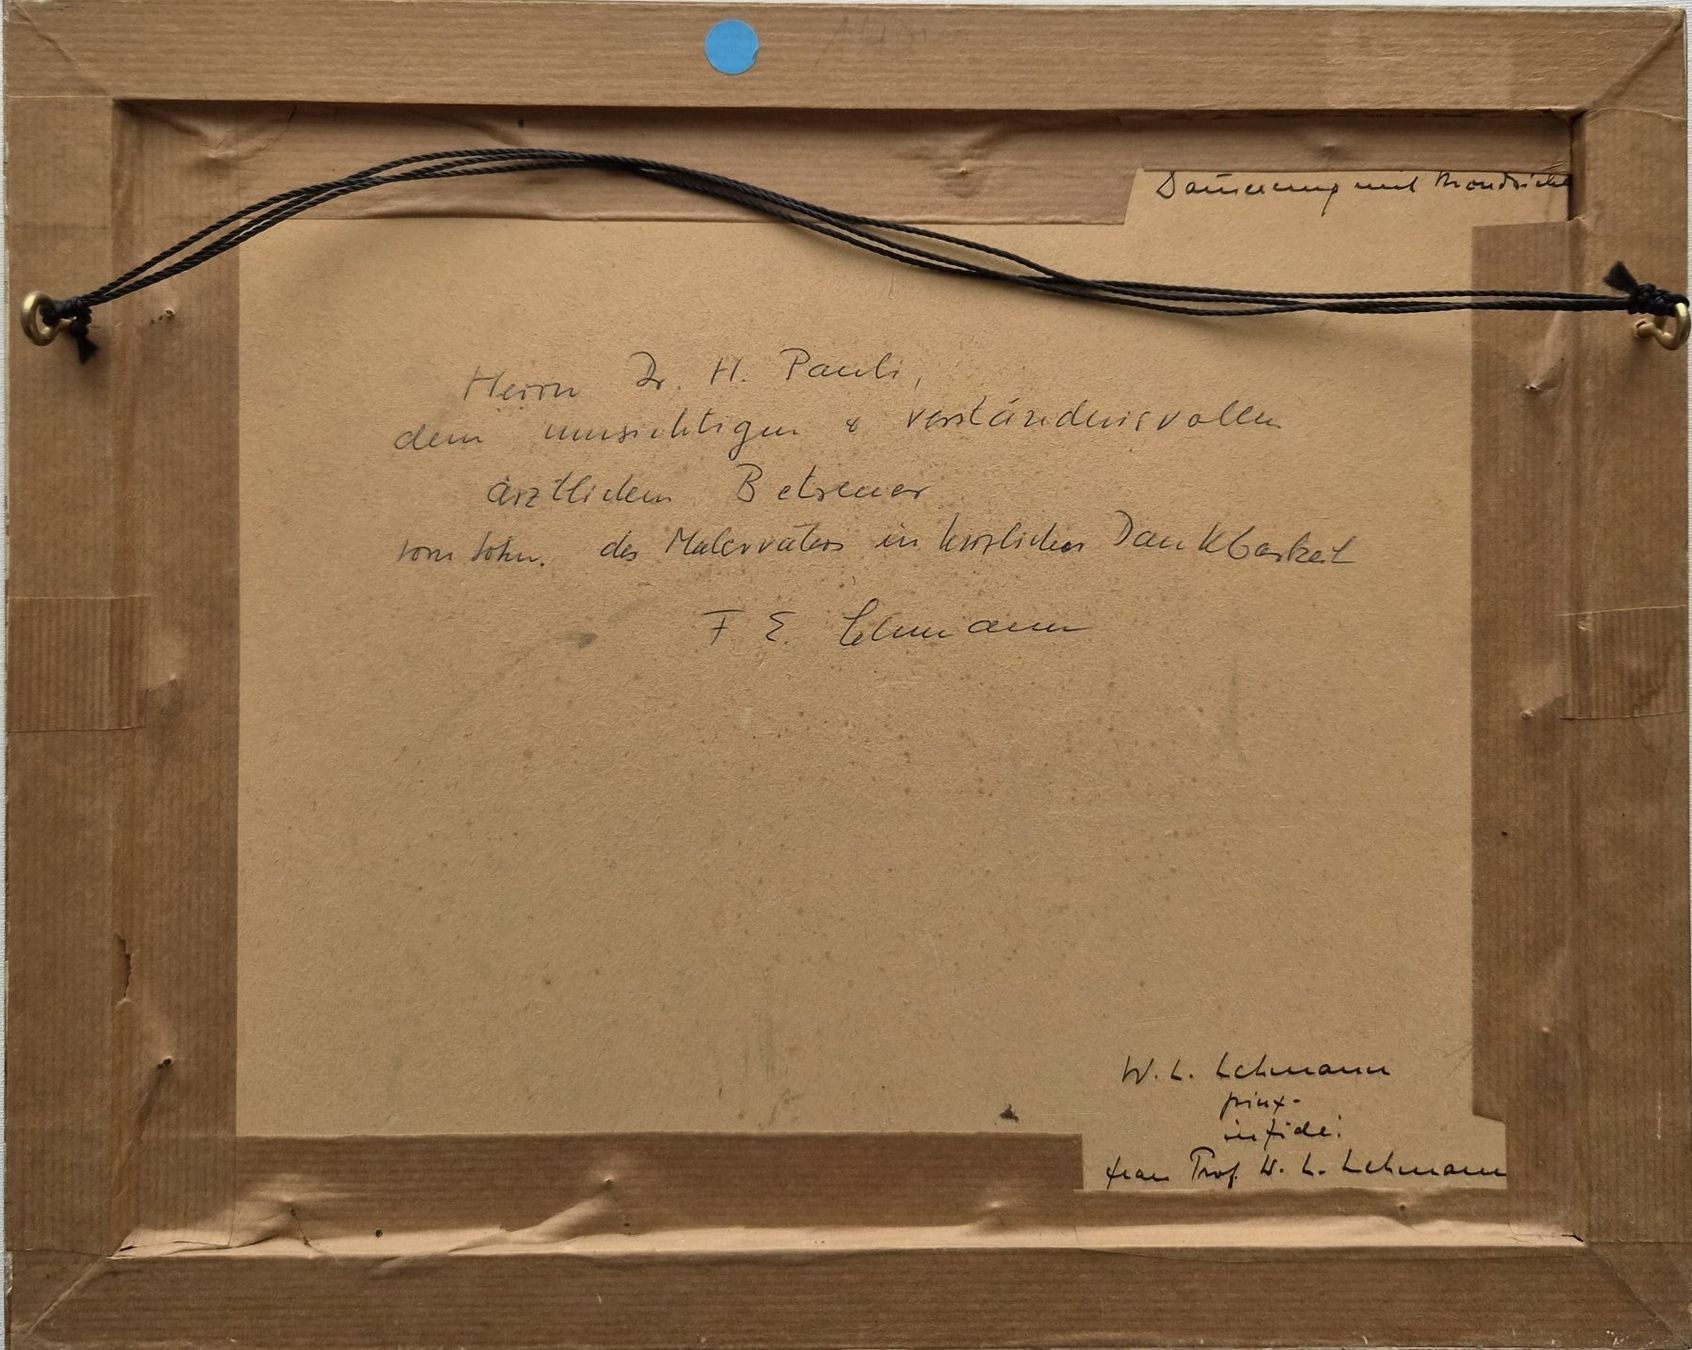 Dämmerung mit Mondsichel
Herrn Dr. H. Pauli,
dem umsichtigen & verständnisvollen
ärztlichem Betreuer
vom Sohn des Malervaters in herzlicher Dankbarkeit
F E. Lehmann
W. L. Lehmann
pinx-
in fide:
frau Prof. W. L. Lehmann